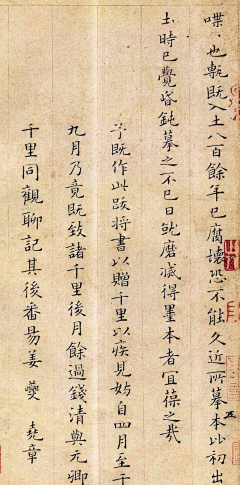 喋、也甎既入土八百餘年已腐壞恐不能久近所摹本比初出
土時已覺昏鈍摹之不已日就磨滅得墨本者宜葆之哉
予既作此跋將書以贈千里以疾見妨自四月至于
九月乃竟既致諸千里後月餘過錢清與元卿
千里同觀聊記其後番昜姜夔堯章